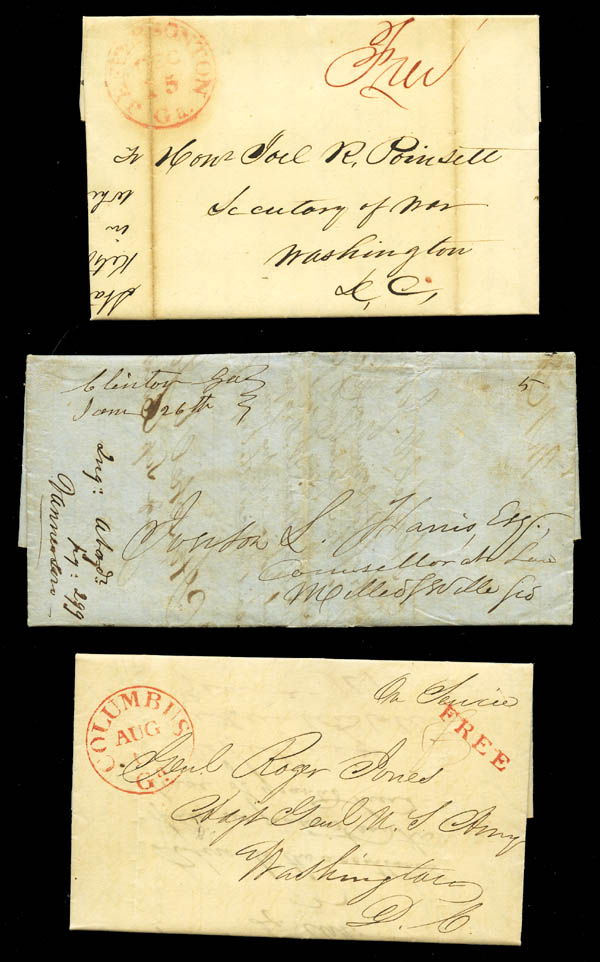 JEFFERSONTON Ga.
DEC
15
Free
To Honr Joel R. Poinsett
Secretary of War
Washington
D, C,
Clinton Ga
Jany 26th
5
Iverson L. Harris, Esqr.
Counsellor at Law
Milledgeville Geo
COLUMBUS Ga.
AUG
On Service
FREE
Genl. Roger Jones
Adjt Genl U. S Army
Washington
D. C.